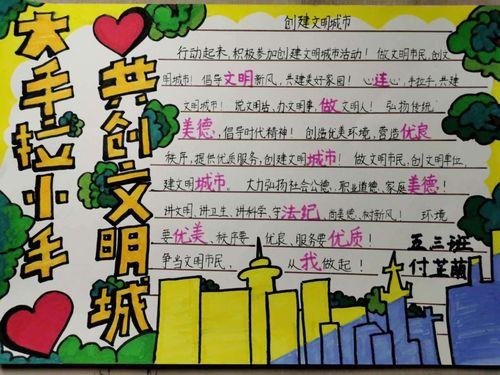 大手拉小手
共创文明城
创建文明城市
行动起来，积极参加创建文明城市活动！做文明市民，创文
明城市！倡导文明新风，共建美好家园！心连心，手拉手，共建
文明城市！说文明话、办文明事，做文明人！弘扬传统
美德，倡导时代精神！创造优美环境，营造优良
秩序，提供优质服务，创建文明城市！做文明市民，创文明单位，
建文明城市。大力弘扬社会公德、职业道德、家庭美德！
讲文明、讲卫生、讲科学、守法纪、尚美德、树新风！环境
要优美、秩序要优良、服务要优质！
争当文明市民，从我做起！
五三班
付芷蘭